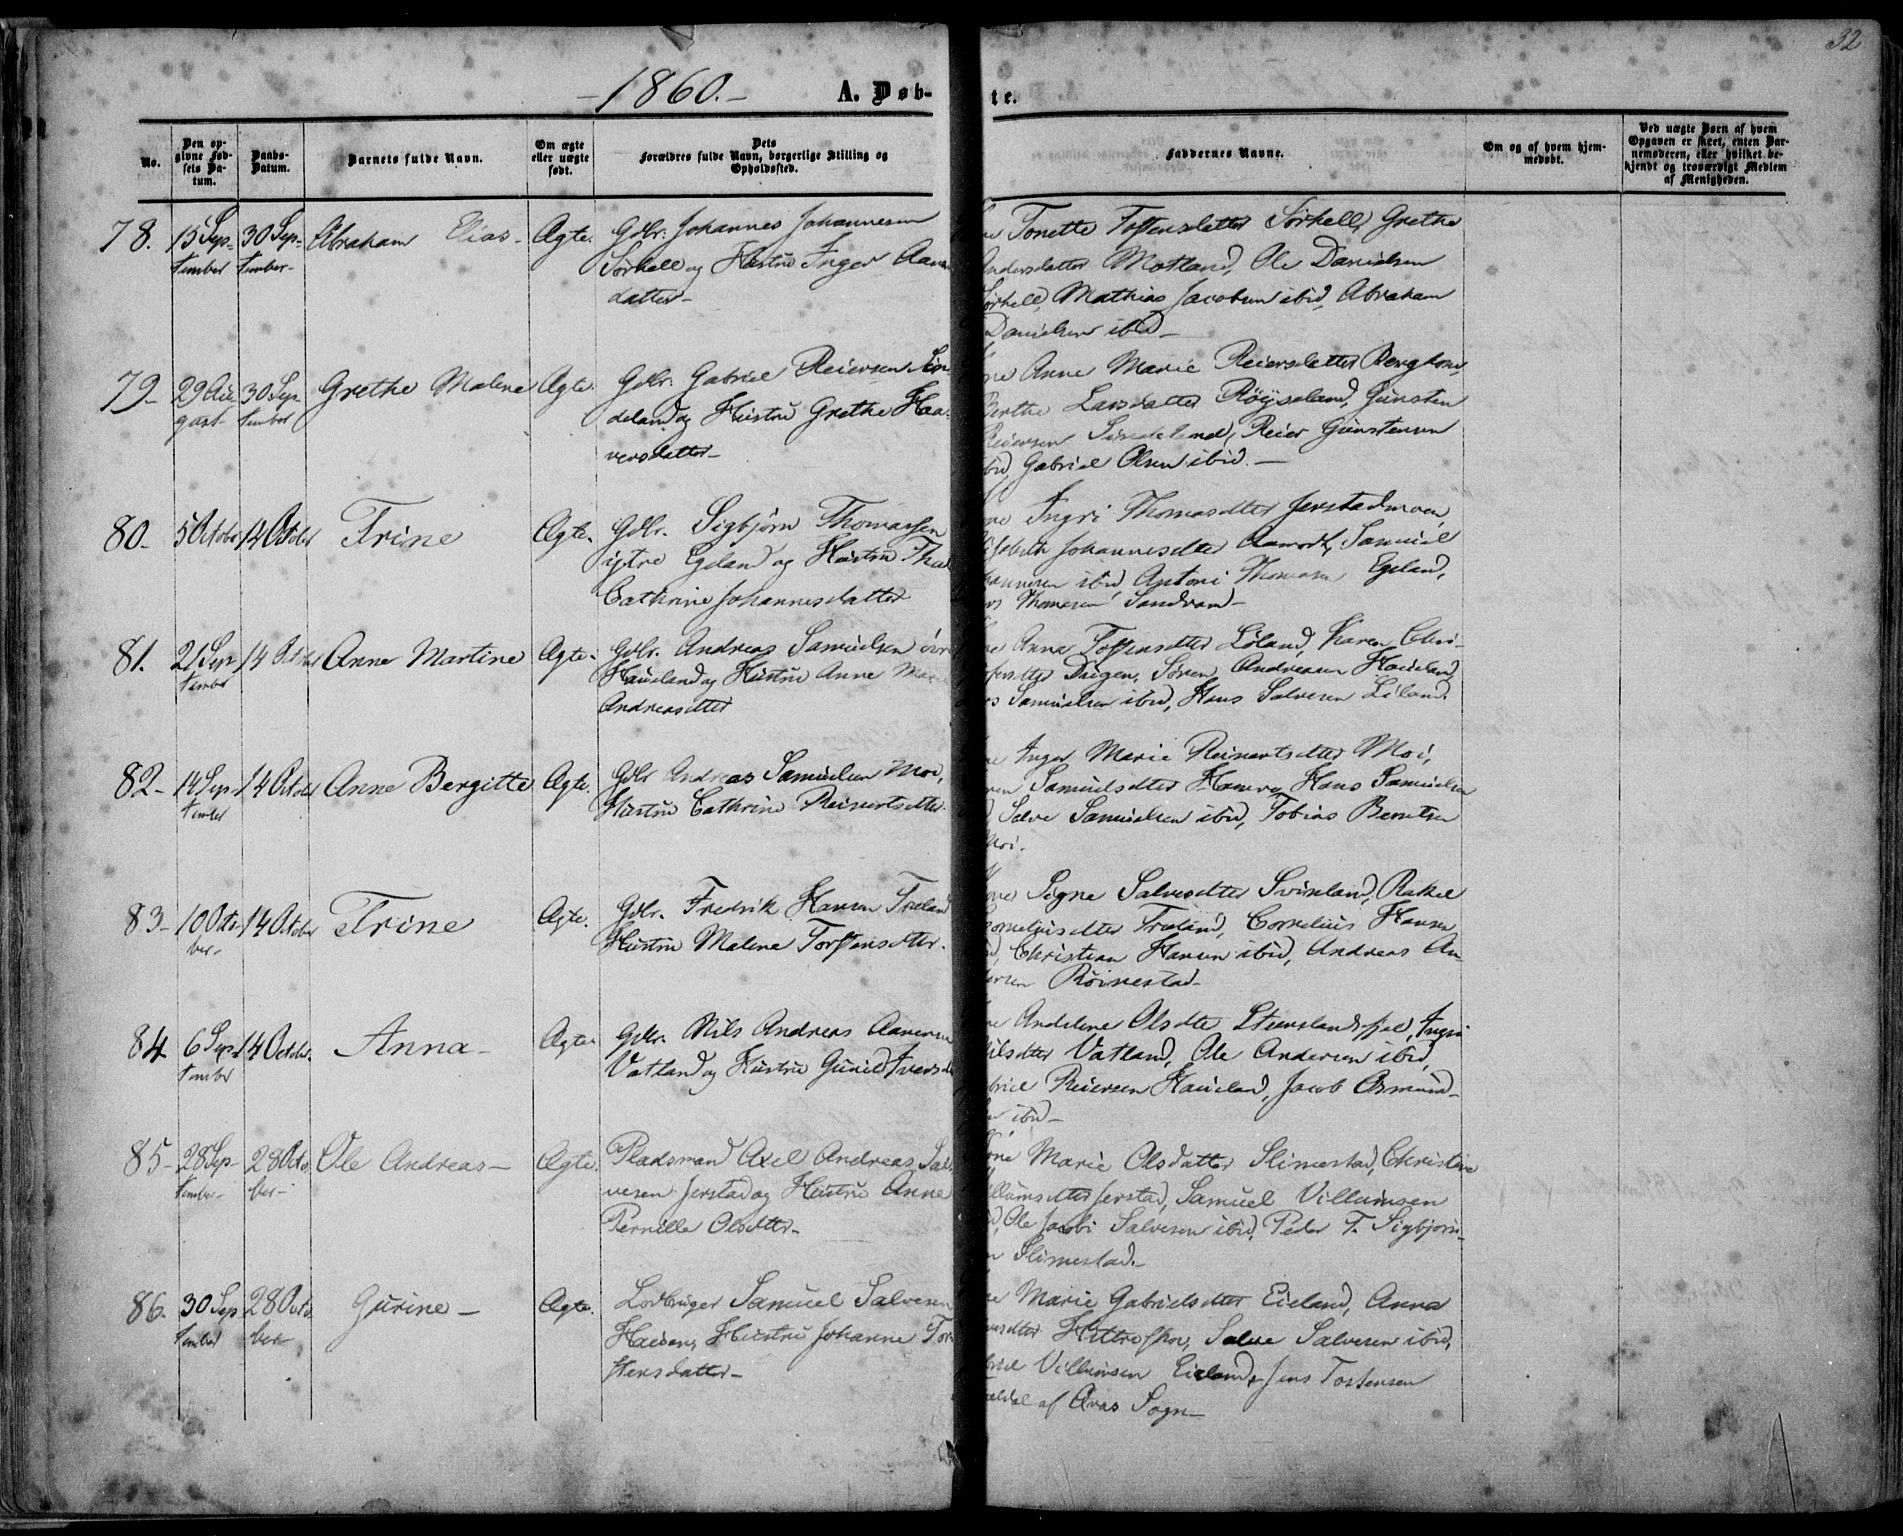 32
-1860.-
A. Døb-
te.
No.
Den op-
givne Fød-
sels Da-
tum.
Daabs-
Datum.
Barnets fulde Navn.
Om ægte
eller uægte
født.
Dets
Forældres fulde Navn, borgerlige Stilling og
Opholdssted.
Faddernes Navne.
Om og af hvem hjem-
medøbt.
Ved uægte Børn af hvem
Opgaven er skeet, enten Bar-
nemoderen, eller hvilket be-
kjendt og troværdigt Medlem
af Menigheden.
78. 15 Sep- 30 Sep- Abraham Elias- Ægte. Gdbr. Johannes Johannesen
tember tember- Sørhell og Hustru Inger Aanen
datter-
Tonette Tossensdatter Sørhell, Grethe
Andersdatter Motland, Ole Danielsen
Sørhell, Mathias Jacobsen ibid, Abraham
Danielsen ibid-
79- 29 Au- 30 Sep- Grethe Malene Ægte. Gdbr. Gabriel Reiersen Sin
gust- tember deland og Hustru Grethe Haa-
versdatter-
Anne Marie Reiersdatter Berghom,
Berthe Larsdatter Røyseland, Gunsten
Reiersen Sindeland, Reier Gunstensen
ibid, Gabriel Olsen ibid.-
80- 5 October 14 October Trine Ægte. Gdbr. Sigbjørn Thomassen
ytre Egeland og Hustru
Cathrine Johannesdatter
Ingri Thomasdtter Jerstadmoen,
Johannesdtter Aamodt, Samuel
ibid, Antoni Thomasen Egeland,
Thomasen Sandvand-
81. 21 Sep- 14 October Anne Martine Ægte. Gdbr. Andreas Samuelsen
tember Haueland og Hustru Anne Marie
Andreasdtter
Anna Tossensdtter Løland, Karen Chri-
Drigen, Søren Andreasen Haueland,
Samuelsen ibid, Hans Salvesen Løland.
82- 14 Sep- 14 October Anne Bergitte Ægte. Gdbr Andreas Samuelsen Moi,
tember Hustru Cathrine Reinertsdtter.
Inger Marie Reinertsdtter Moi,
Samuelsdtter Hamre, Hans Samuelsen
Salve Samuelsen ibid, Tobias Berntsen
Moi.
83- 10 Octo- 14 October Trine Ægte. Gdbr. Fredrik Hansen Treland
ber- Hustru Malene Torstensdtter.
Signe Salvesdtter Svineland, Rakel
Corneliusdtter Treland, Cornelius Hansen
Christian Hansen ibid, Andreas An-
dersen Röinestad-
84. 6 Sep- 14 October. Anna- Ægte. Gdbr. Nils Andreas Aanensen
tember Vatland og Hustru Gunild Iversd
Andelene Olsdtter Stemlandsfjel, Ingri
Nilsdtter Vatland, Ole Andersen ibid,
Gabriel Reiersen Haueland, Jacob Osmund-
ibid-
85- 28 Sep- 28 Octo- Ole Andreas- Ægte. Pladsmand Axel Andreas Sal-
tember- ber- vesen Jerstad og Hustru Anne
Pernille Olsdtter-
Marie Olsdatter Slimestad, Christine
Villumsdtter Jerstad, Samuel Villumsen
Ole Jacobi Salvesen ibid, Peder T. Sigbjørn-
Slimestad.-
86. 30 Sep- 28 Octo- Gurine- Ægte. Lodbruger Samuel Salvesen
tember ber- Hauen, Hustru Johanne Tor
stensdatter-
Marie Gabrielsdtter Eieland, Anna
Hitterø, Salve Salvesen ibid,
Villumsen Eieland, Jens Tostensen
af Qvas Sogn-